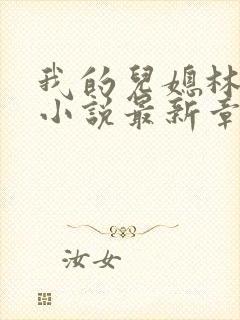 我的兒媳林
小說最新章
汝女